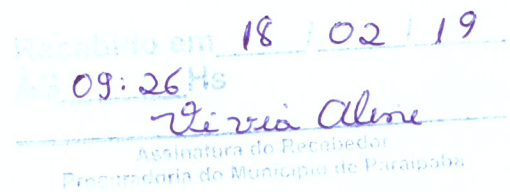 Recebido em 18 / 02 / 19
ÀS 09:26 Hs
Vivia Aline
Assinatura do Recebedor
Procuradoria do Município de Paraipaba